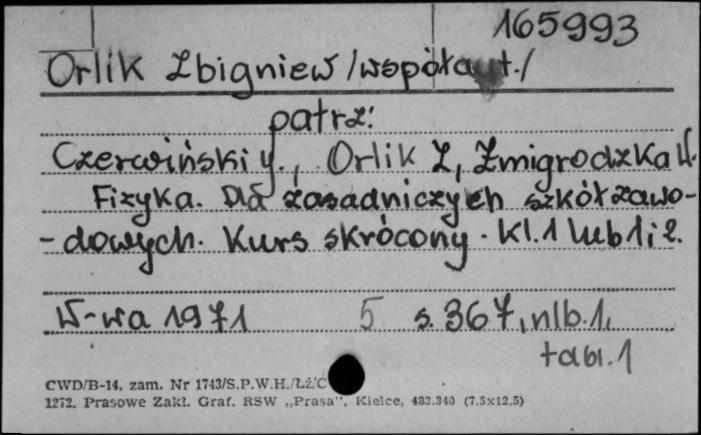 165993
Orlik Zbigniew /współaut./
patrz:
Czerwiński y., Orlik Z, Żmigrodzka W.
Fizyka. Dla zasadniczych szkół zawo-
-dowych. Kurs skrócony. Kl.1 lub 1i2.
W-wa 1971 5 s. 367, nlb.1,
tabl.1
CWD/B-14, zam. Nr 1743/S.P.W.H./Łż/C
1272. Prasowe Zakł. Graf. RSW „Prasa”, Kielce, 483.340 (7,5x12,5)